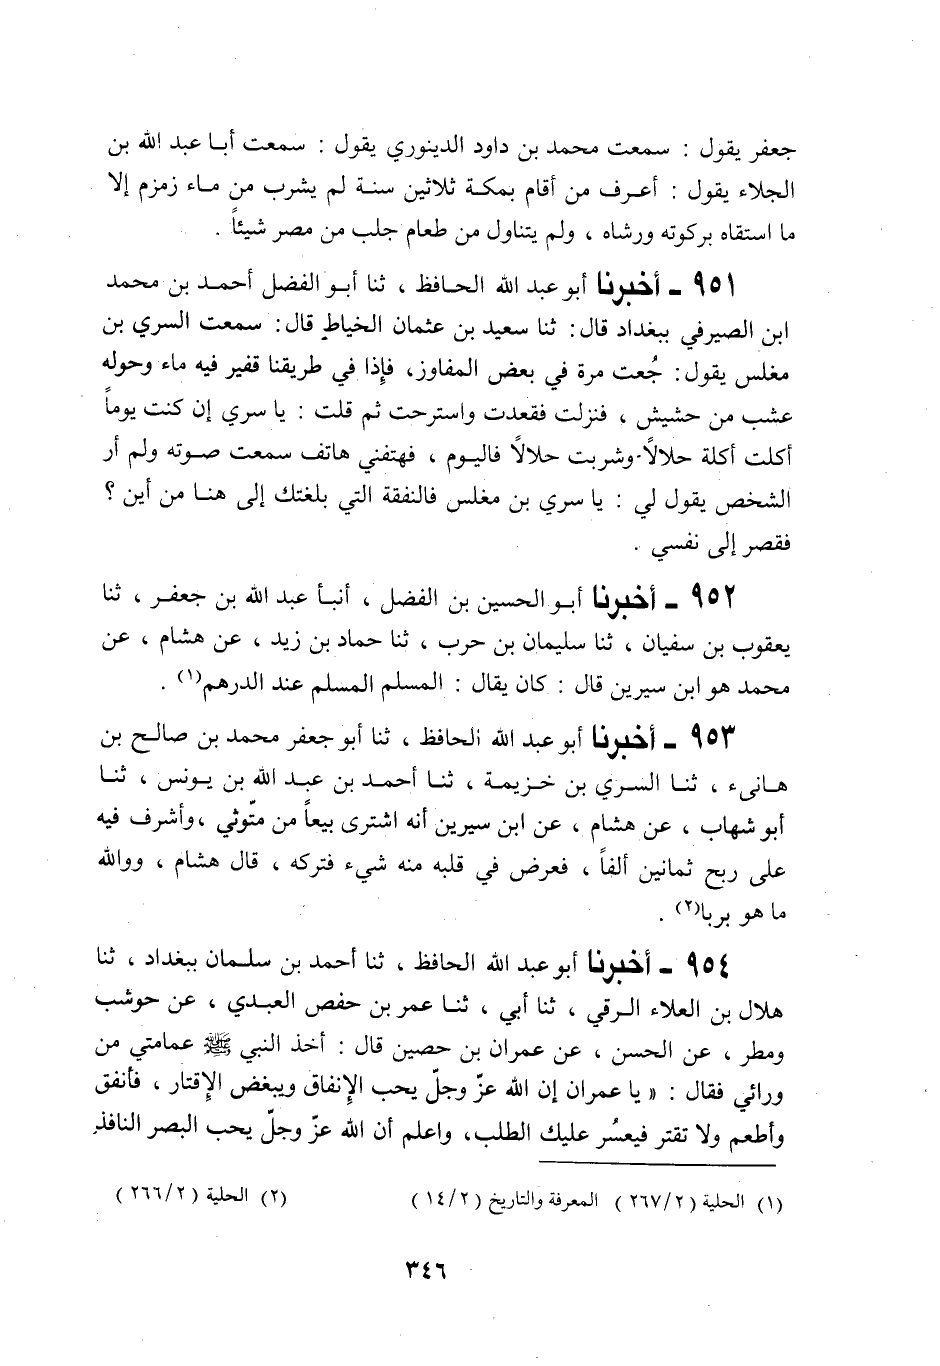 جعفر يقول : سمعت محمد بن داود الدينوري يقول : سمعت أبا عبد الله بن
الجلاء يقول : أعرف من أقام بمكة ثلاثين سنة لم يشرب من ماء زمزم إلا
ما استقاه بركوته ورشاه ، ولم يتناول من طعام جلب من مصر شيئاً .
٩٥١ - أخبرنا أبو عبد الله الحافظ ، ثنا أبو الفضل أحمد بن محمد
ابن الصيرفي ببغداد قال : ثنا سعيد بن عثمان الخياط قال : سمعت السري بن
مغلس يقول : جُعت مرة في بعض المفاوز، فإذا في طريقنا قفير فيه ماء وحوله
عشب من حشيش ، فنزلت فقعدت واسترحت ثم قلت : يا سري إن كنت يوماً
أكلت أكلة حلالاً وشربت حلالاً فاليوم ، فهتفني هاتف سمعت صوته ولم أر
الشخص يقول لي : يا سري بن مغلس فالنفقة التي بلغتك إلى هنا من أين ؟
فقصر إلى نفسي .
٩٥٢ - أخبرنا أبو الحسين بن الفضل ، أنبأ عبد الله بن جعفر ، ثنا
يعقوب بن سفيان ، ثنا سليمان بن حرب ، ثنا حماد بن زيد ، عن هشام ، عن
محمد هو ابن سيرين قال : كان يقال : المسلم المسلم عند الدرهم(١) .
٩٥٣ - أخبرنا أبو عبد الله الحافظ ، ثنا أبو جعفر محمد بن صالح بن
هانىء ، ثنا السري بن خزيمة ، ثنا أحمد بن عبد الله بن يونس ، ثنا
أبو شهاب ، عن هشام ، عن ابن سيرين أنه اشترى بيعاً من متّوثي ،وأشرف فيه
على ربح ثمانين ألفاً ، فعرض في قلبه منه شيء فتركه ، قال هشام ، ووالله
ما هو بربا(٢) .
٩٥٤ - أخبرنا أبو عبد الله الحافظ ، ثنا أحمد بن سلمان ببغداد ، ثنا
هلال بن العلاء الرقي ، ثنا أبي ، ثنا عمر بن حفص العبدي ، عن حوشب
ومطر ، عن الحسن ، عن عمران بن حصين قال : أخذ النبي ﷺ عمامتي من
ورائي فقال : « يا عمران إن الله عزّ وجلّ يحب الإنفاق ويبغض الإقتار ، فأنفق
وأطعم ولا تقتر فيعسُر عليك الطلب، واعلم أن الله عزّ وجلّ يحب البصر النافذ
(١) الحلية ( ٢٦٧/٢ ) المعرفة والتاريخ ( ١٤/٢ ) (٢) الحلية ( ٢٦٦/٢ )
٣٤٦